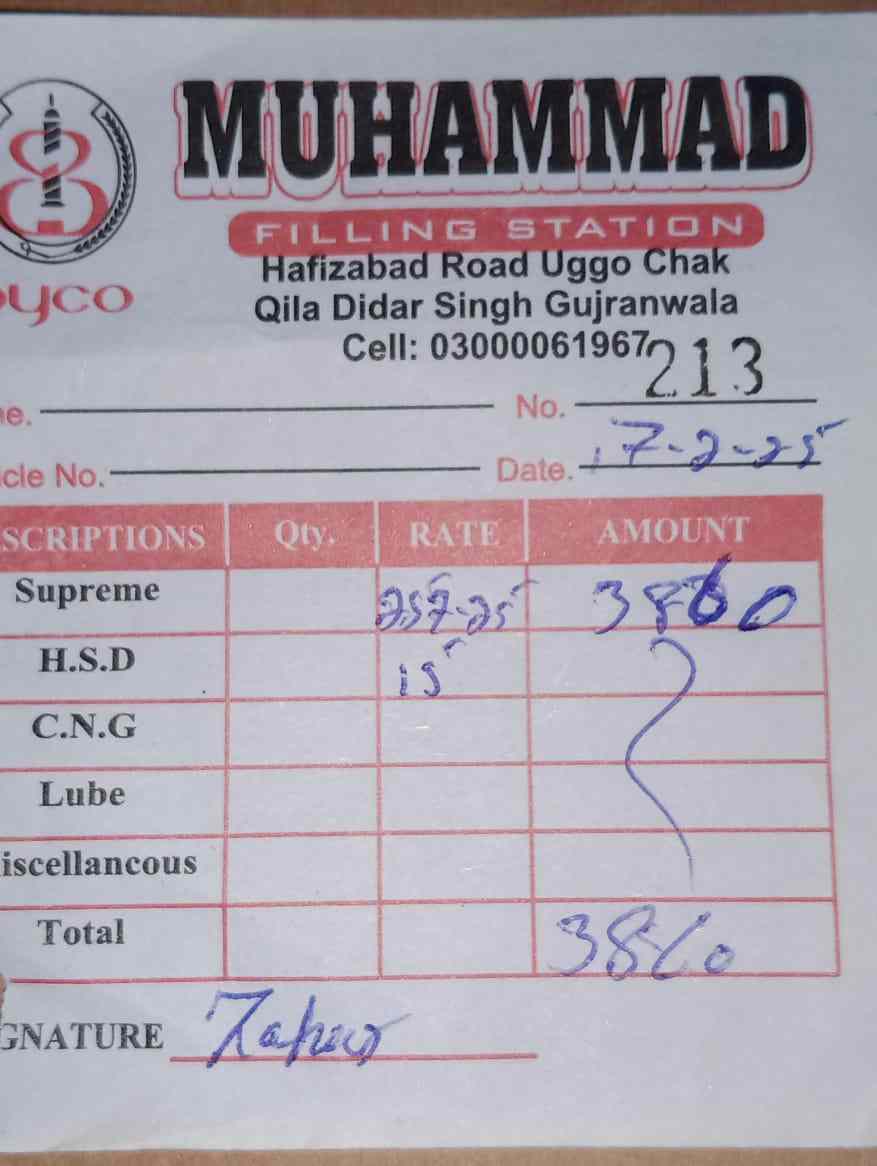 MUHAMMAD
FILLING STATION
Hafizabad Road Uggo Chak
Qila Didar Singh Gujranwala
Cell: 03000061967
yco
e. No. 213
cle No. Date. 17-2-25
SCRIPTIONS Qty. RATE AMOUNT
Supreme 257-25 3860
H.S.D 15
C.N.G
Lube
iscellancous
Total 3860
GNATURE